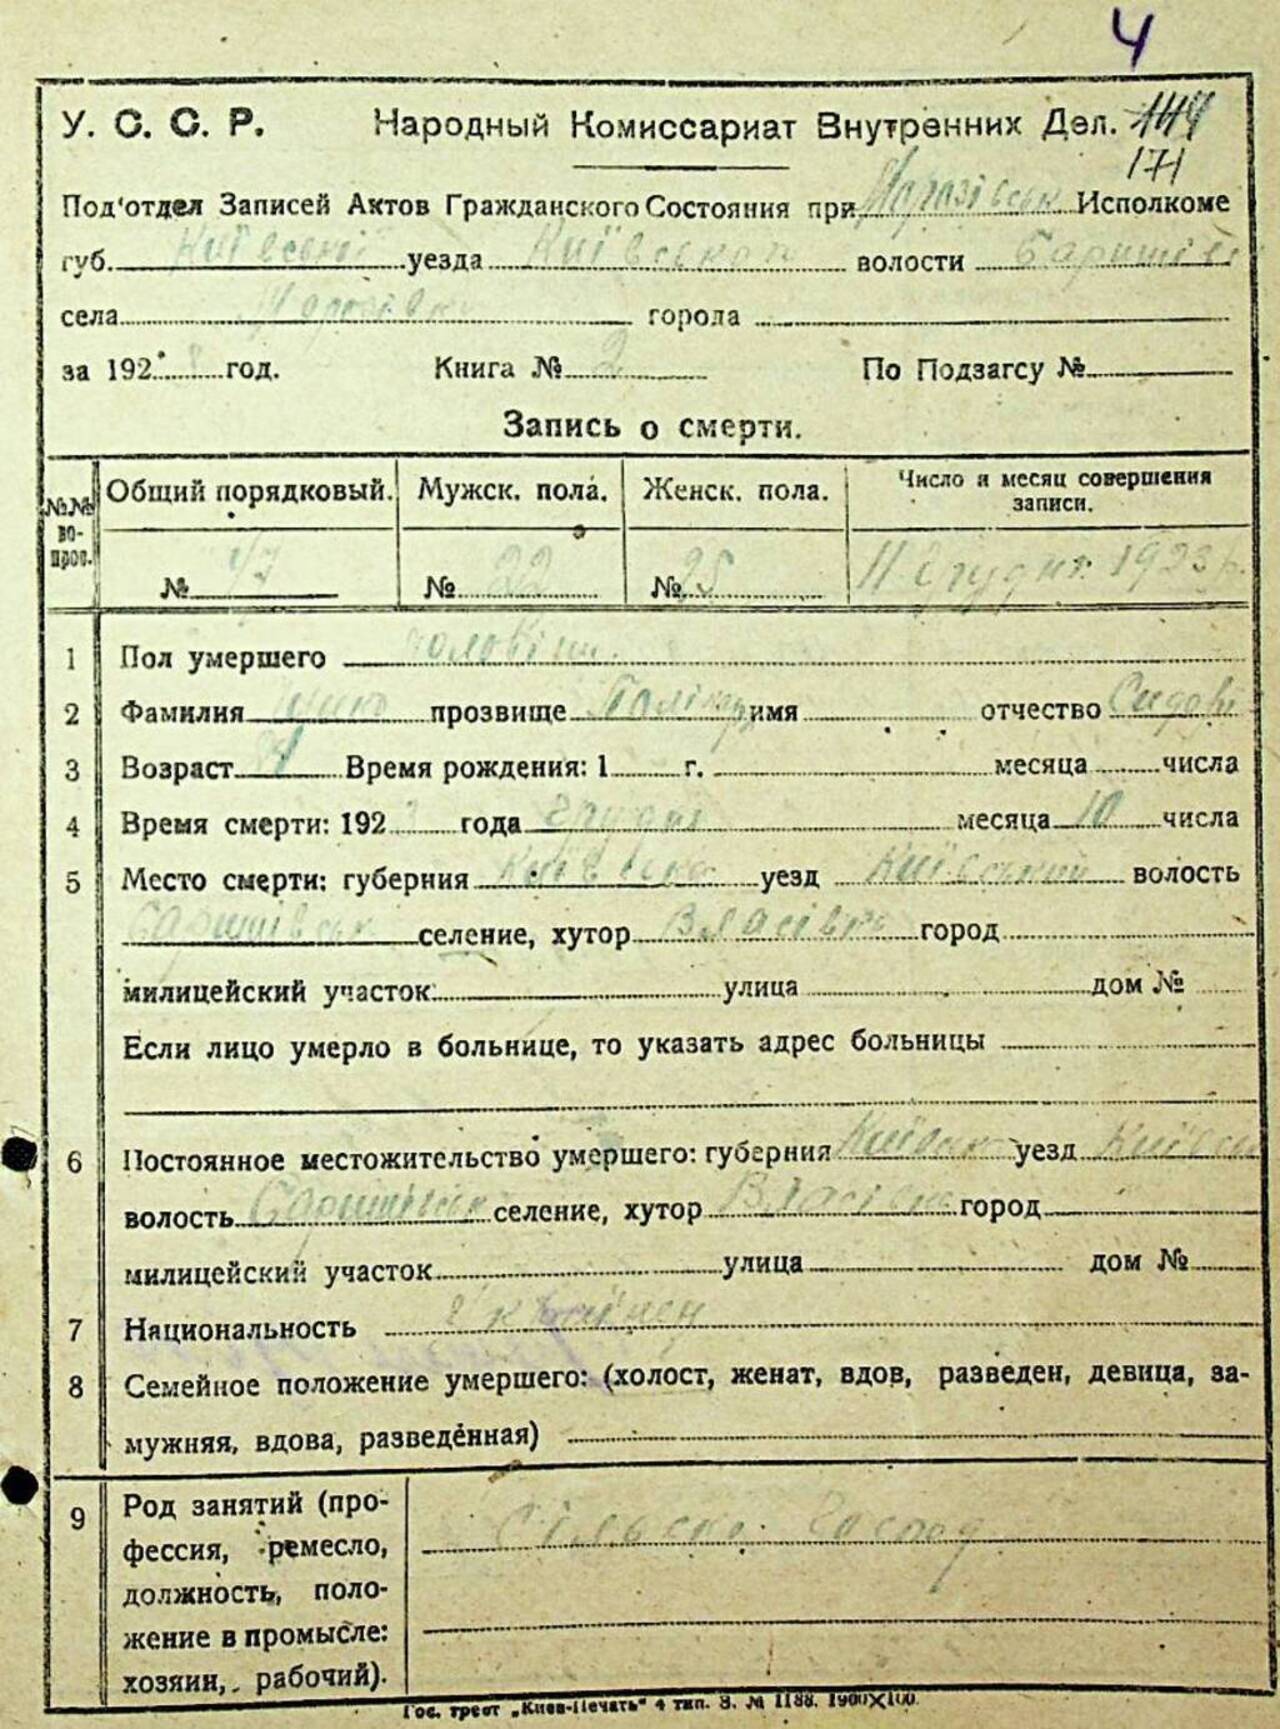 4
У. С. С. Р. Народный Комиссариат Внутренних Дел. 144
171
Под'отдел Записей Актов Гражданского Состояния при Исполкоме
губ. Київської уезда Київського волости Баришівс
села города
за 192 год. Книга № 2 По Подзагсу №
Запись о смерти.
№№ вопрос. Общий порядковый. Мужск. пола. Женск. пола. Число и месяц совершения записи.
№ 47 № 22 № 25 11 Грудня 1923 р.
1 Пол умершего чоловічи.
2 Фамилия прозвище Полікарп имя отчество Сидорів
3 Возраст Время рождения: 1 г. месяца числа
4 Время смерти: 192 3 года Грудня месяца 10 числа
5 Место смерти: губерния Київська уезд Київський волость
Баришівськ селение, хутор Власівка город
милицейский участок улица дом №
Если лицо умерло в больнице, то указать адрес больницы
6 Постоянное местожительство умершего: губерния Київськ уезд Київськ
волость Баришівськ селение, хутор Власівка город
милицейский участок улица дом №
7 Национальность Українец
8 Семейное положение умершего: (холост, женат, вдов, разведен, девица, за-
мужняя, вдова, разведённая)
9 Род занятий (про- Сільске Господ
фессия, ремесло,
должность, поло-
жение в промысле:
хозяин, рабочий).
Гос. трест „Киев-Печать" 4 тип. З. № 1188. 1900×100.